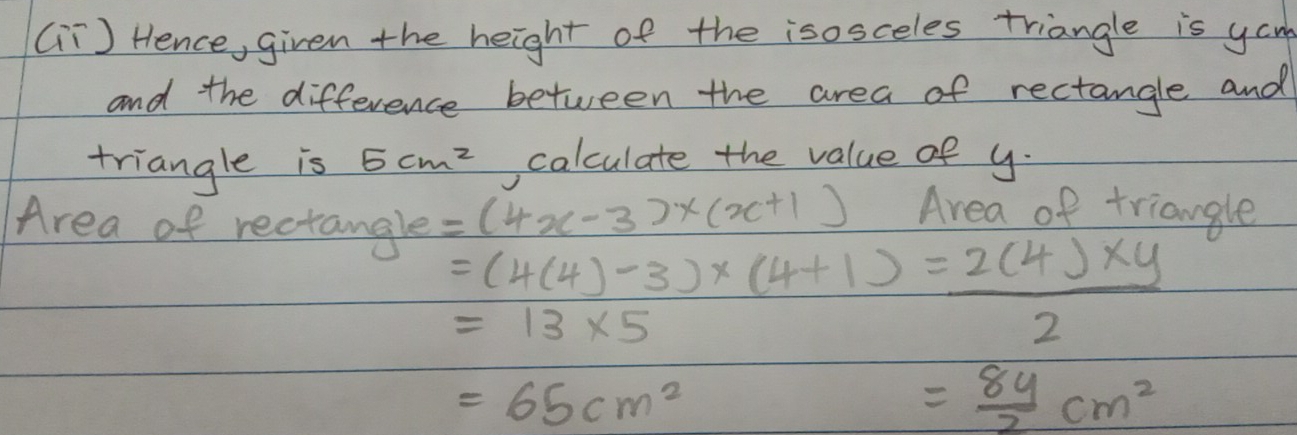 (ii) Hence, given the height of the isosceles triangle is ycm
and the difference between the area of rectangle and
triangle is 5cm², calculate the value of y.
Area of rectangle = (4x-3)×(x+1) Area of triangle
= (4(4)-3)×(4+1) = 2(4)×y
= 13×5 2
= 65cm² = 8y/2 cm²